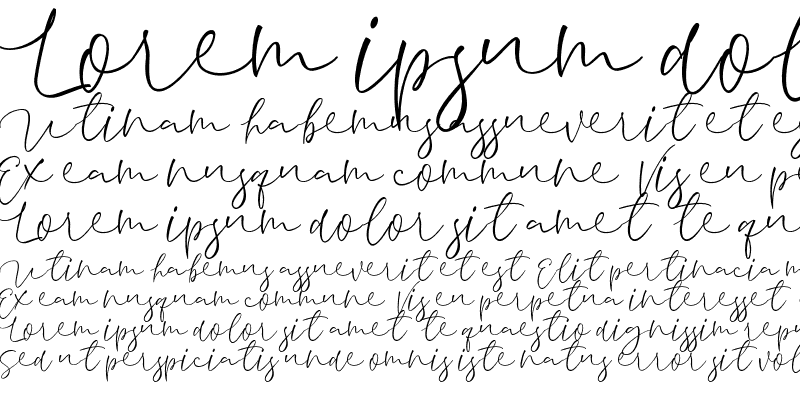 Lorem ipsum dol
Utinam habemus assueverit et es
Ex eam nusquam commune Vis eu p
Lorem ipsum dolor sit amet te qu
Utinam habemus assueverit et est Elit pertinacia m
Ex eam nusquam commune Vis eu perpetua interesset
Lorem ipsum dolor sit amet te quaestio dignissim repu
Sed ut perspiciatis unde omnis iste natus error sit vol